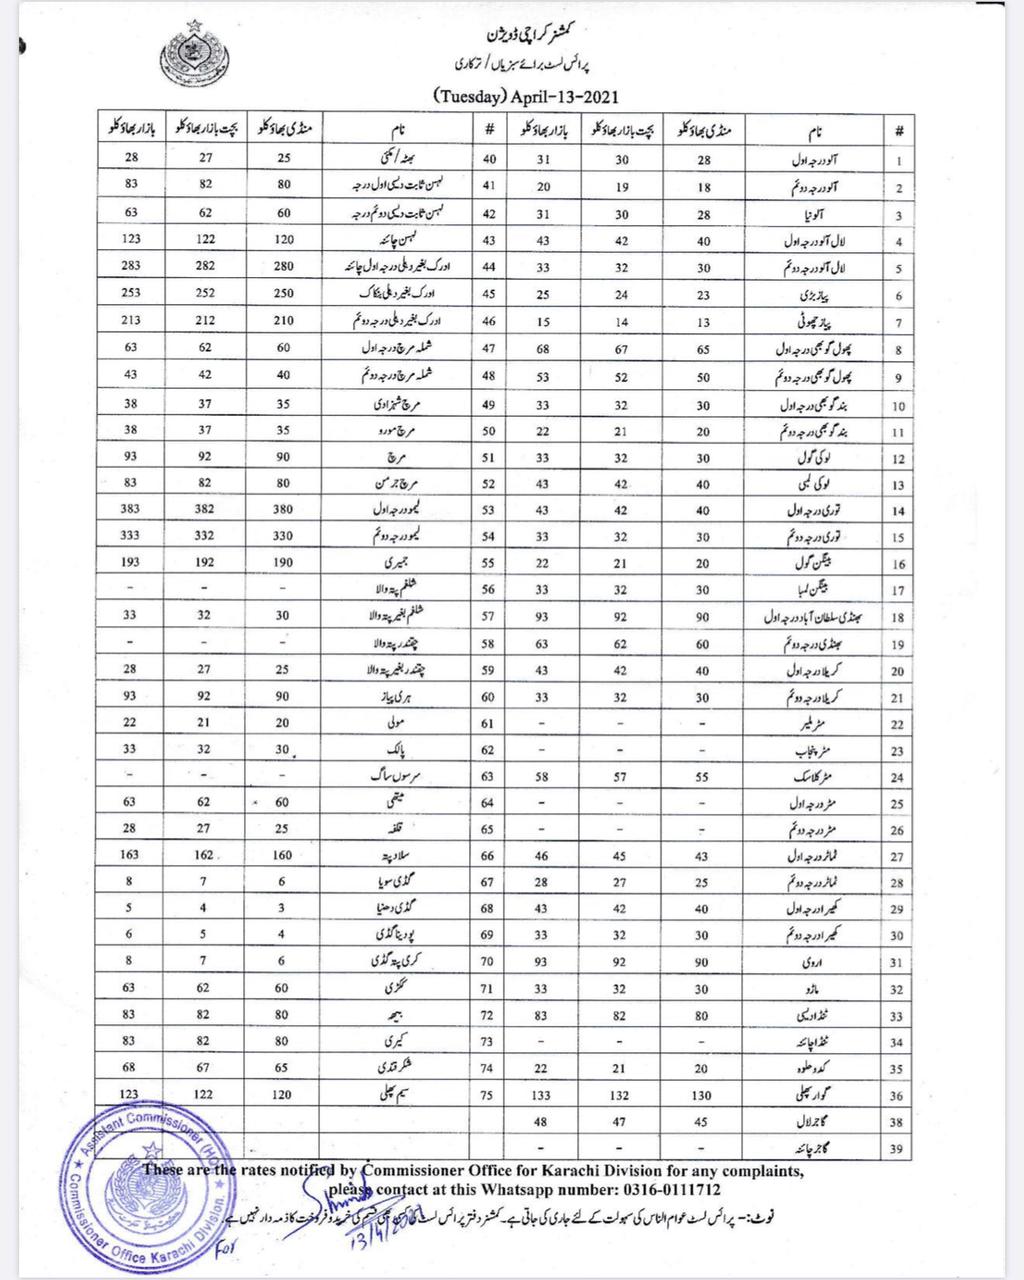 کمشنر کراچی ڈویژن
پرائس لسٹ برائے سبزیاں / ترکاری
(Tuesday) April-13-2021
# نام منڈی بھاؤ کلو بچت بازار بھاؤ کلو بازار بھاؤ کلو # نام منڈی بھاؤ کلو بچت بازار بھاؤ کلو بازار بھاؤ کلو
1 آلو درجہ اول 28 30 31 40 بھٹہ / مکئی 25 27 28
2 آلو درجہ دوئم 18 19 20 41 لہسن ثابت دیسی اول درجہ 80 82 83
3 آلو نیا 28 30 31 42 لہسن ثابت دیسی دوئم درجہ 60 62 63
4 لال آلو درجہ اول 40 42 43 43 لہسن چائنہ 120 122 123
5 لال آلو درجہ دوئم 30 32 33 44 ادرک بغیر دھلی درجہ اول چائنہ 280 282 283
6 پیاز بڑی 23 24 25 45 ادرک بغیر دھلی بنکاک 250 252 253
7 پیاز چھوٹی 13 14 15 46 ادرک بغیر دھلی درجہ دوئم 210 212 213
8 پھول گوبھی درجہ اول 65 67 68 47 شملہ مرچ درجہ اول 60 62 63
9 پھول گوبھی درجہ دوئم 50 52 53 48 شملہ مرچ درجہ دوئم 40 42 43
10 بند گوبھی درجہ اول 30 32 33 49 مرچ شہزادی 35 37 38
11 بند گوبھی درجہ دوئم 20 21 22 50 مرچ مورو 35 37 38
12 لوکی گول 30 32 33 51 مرچ 90 92 93
13 لوکی لمبی 40 42 43 52 مرچ جرمن 80 82 83
14 توری درجہ اول 40 42 43 53 لیمو درجہ اول 380 382 383
15 توری درجہ دوئم 30 32 33 54 لیمو درجہ دوئم 330 332 333
16 بینگن گول 20 21 22 55 جمیری 190 192 193
17 بینگن لمبا 30 32 33 56 شلغم پتہ والا - - -
18 بھنڈی سلطان آباد درجہ اول 90 92 93 57 شلغم بغیر پتہ والا 30 32 33
19 بھنڈی درجہ دوئم 60 62 63 58 چقندر پتہ والا - - -
20 کریلا درجہ اول 40 42 43 59 چقندر بغیر پتہ والا 25 27 28
21 کریلا درجہ دوئم 30 32 33 60 ہری پیاز 90 92 93
22 مٹر ملیر - - - 61 مولی 20 21 22
23 مٹر پنجاب - - - 62 پالک 30 32 33
24 مٹر کلاسک 55 57 58 63 سرسوں ساگ - - -
25 مٹر درجہ اول - - - 64 میتھی 60 62 63
26 مٹر درجہ دوئم - - - 65 قلفہ 25 27 28
27 ٹماٹر درجہ اول 43 45 46 66 سلاد پتہ 160 162 163
28 ٹماٹر درجہ دوئم 25 27 28 67 گڈی سویا 6 7 8
29 کھیرا درجہ اول 40 42 43 68 گڈی دھنیا 3 4 5
30 کھیرا درجہ دوئم 30 32 33 69 پودینا گڈی 4 5 6
31 اروی 90 92 93 70 کری پتہ گڈی 6 7 8
32 ماڑو 30 32 33 71 ککڑی 60 62 63
33 ٹنڈا دیسی 80 82 83 72 بیھ 80 82 83
34 ٹنڈا چائنہ - - - 73 کیری 80 82 83
35 کدو حلوہ 20 21 22 74 شکر قندی 65 67 68
36 گوار پھلی 130 132 133 75 سیم پھلی 120 122 123
38 گاجر لال 45 47 48
39 گاجر چائنہ - - -
These are the rates notified by Commissioner Office for Karachi Division for any complaints,
please contact at this Whatsapp number: 0316-0111712
نوٹ:- پرائس لسٹ عوام الناس کی سہولت کے لئے جاری کی جاتی ہے۔ کمشنر دفتر پرائس لسٹ کی کسی بھی قسم کی خرید و فروخت کا ذمہ دار نہیں ہے۔
13/4/2021
For
Assistant Commissioner (HQ)
Commissioner Office Karachi Division.